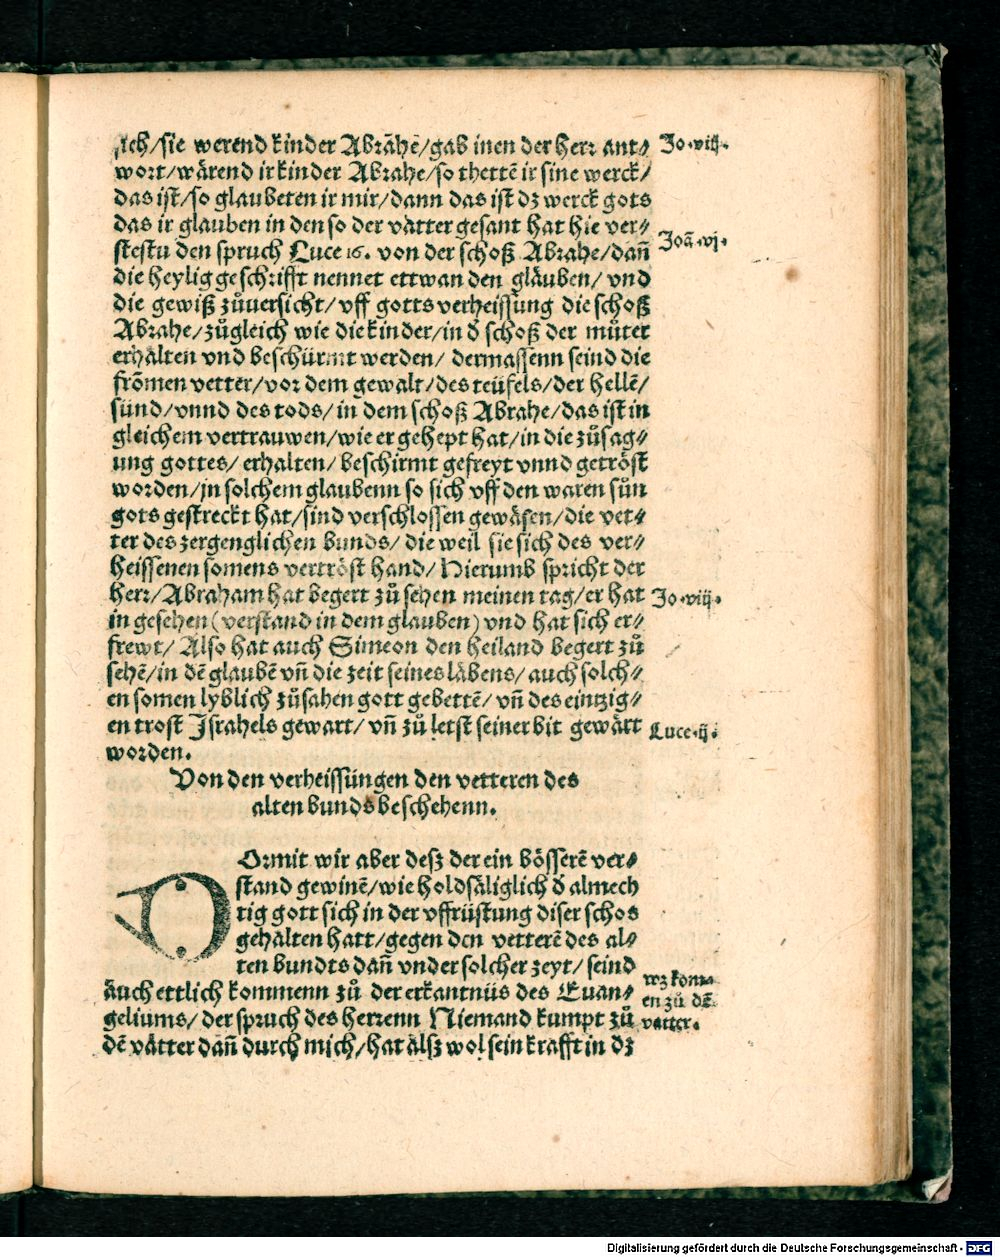 sich/sie werend kinder Abrahē/gab inen der herr ant⸗
wort/wärend ir kinder Abrahe/so thettē ir sine werck/
das ist/so glaubeten ir mir/dann das ist dz werck gots
das ir glauben in den so der vatter gesant hat hie ver⸗
stestu den spruch Luce 16. von der schoß Abrahe/dañ
die heylig geschrifft nennet ettwan den gläuben/ vnd
die gewiß zůuersicht/ vff gotts verheissung die schoß
Abrahe/zůgleich wie die kinder/in d̄ schoß der můter
erhalten vnd beschürmt werden/ dermassenn seind die
frömen vetter/vor dem gewalt/des teüfels/der hellē/
sünd/vnnd des tods/in dem schoß Abrahe/das ist in
gleichem vertrauwen/wie er gehept hat/in die zůsag⸗
ung gottes/ erhalten/ beschirmt gefreyt vnnd getröst
worden/in solchem glaubenn so sich vff den waren sůn
gots gestreckt hat/sind verschlossen gewäsen/die vet⸗
ter des zergenglichen bunds/ die weil sie sich des ver⸗
heissenen somens vertröst hand/ Hierumb spricht der
herr/Abraham hat begert zů sehen meinen tag/er hat
in gesehen (verstand in dem glauben) vnd hat sich er⸗
frewt/ Also hat auch Simeon den heiland begert zů
sehē/in dē glaubē vñ die zeit seines läbens/auch solch⸗
en somen lyblich zůsahen gott gebettē/ vñ des eintzig⸗
en trost Israhels gewart/ vñ zů letst seiner bit gewärt
worden.
Jo.viij.
Joā.vj.
Jo.viij.
Luce.ij.
Von den verheissungen den vetteren des
alten bunds beschehenn.
DOrmit wir aber desz der ein bösserē ver⸗
stand gewinē/wie holdsäliglich d̄ almech
tig gott sich in der vffrüstung diser schos
gehalten hatt/gegen den vetterē des al⸗
ten bundts dañ vnder solcher zeyt/ seind
auch ettlich kommenn zů der erkantnüs des Euan⸗
geliums/ der spruch des herrenn Niemand kumpt zů
dē vätter dañ durch mich/hat alsz wol sein krafft in dz
wz kom⸗
en zů dē
vatter.
Digitalisierung gefördert durch die Deutsche Forschungsgemeinschaft - DFG